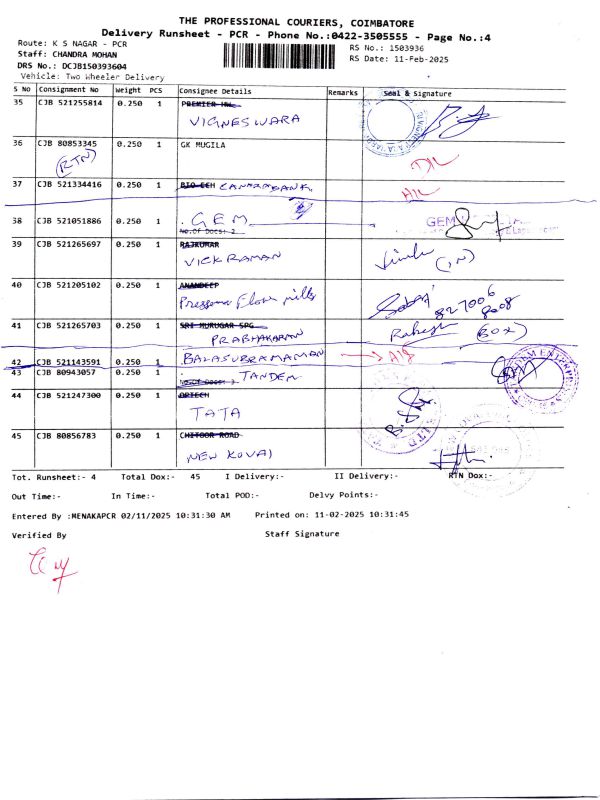 THE PROFESSIONAL COURIERS, COIMBATORE
Delivery Runsheet - PCR - Phone No.:0422-3505555 - Page No.:4
Route: K S NAGAR - PCR
RS No.: 1503936
Staff: CHANDRA MOHAN
RS Date: 11-Feb-2025
DRS No.: DCJB150393604
Vehicle: Two Wheeler Delivery
S No Consignment No Weight PCS Consignee Details Remarks Seal & Signature
35 CJB 521255814 0.250 1 PREMIER
VIGNESWARA
36 CJB 80853345 0.250 1 GK MUGILA
(RTN)
37 CJB 521334416 0.250 1 CANARABANK.
38 CJB 521051886 0.250 1 . GEM
No.Of Docs: 2
GEM
39 CJB 521265697 0.250 1 RAJKUMAR
VICKRAMAN
40 CJB 521205102 0.250 1 ANANDEEP
Flour mills
827006
8008
41 CJB 521265703 0.250 1 SRI MURUGAR SPG
PRABHAKARAN
Rakesh
42 CJB 521143591 0.250 1 BALASUBRAMANIAN
43 CJB 80943057 0.250 1 .
No.Of Docs: 3 TANDEM
44 CJB 521247300 0.250 1 ORTECH
TATA
45 CJB 80856783 0.250 1 CHITOOR ROAD
NEW KOVAI
Tot. Runsheet:- 4 Total Dox:- 45 I Delivery:- II Delivery:- RTN Dox:-
Out Time:- In Time:- Total POD:- Delvy Points:-
Entered By :MENAKAPCR 02/11/2025 10:31:30 AM Printed on: 11-02-2025 10:31:45
Verified By Staff Signature